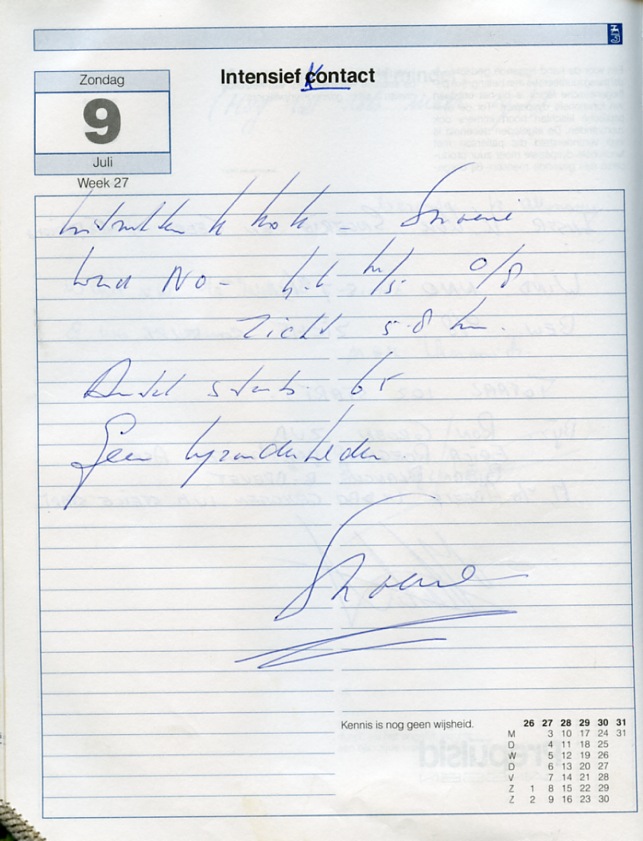 Zondag
9
Juli
Week 27
Intensief Kontact
Instrukteur Kkok - Snoene
Wind NO - 4-6 m/s 0/8
Zicht 5-8 km.
Aantal starts 65
Geen byzonderheden
Kennis is nog geen wijsheid.
26 27 28 29 30 31
M 3 10 17 24 31
D 4 11 18 25
W 5 12 19 26
D 6 13 20 27
V 7 14 21 28
Z 1 8 15 22 29
Z 2 9 16 23 30